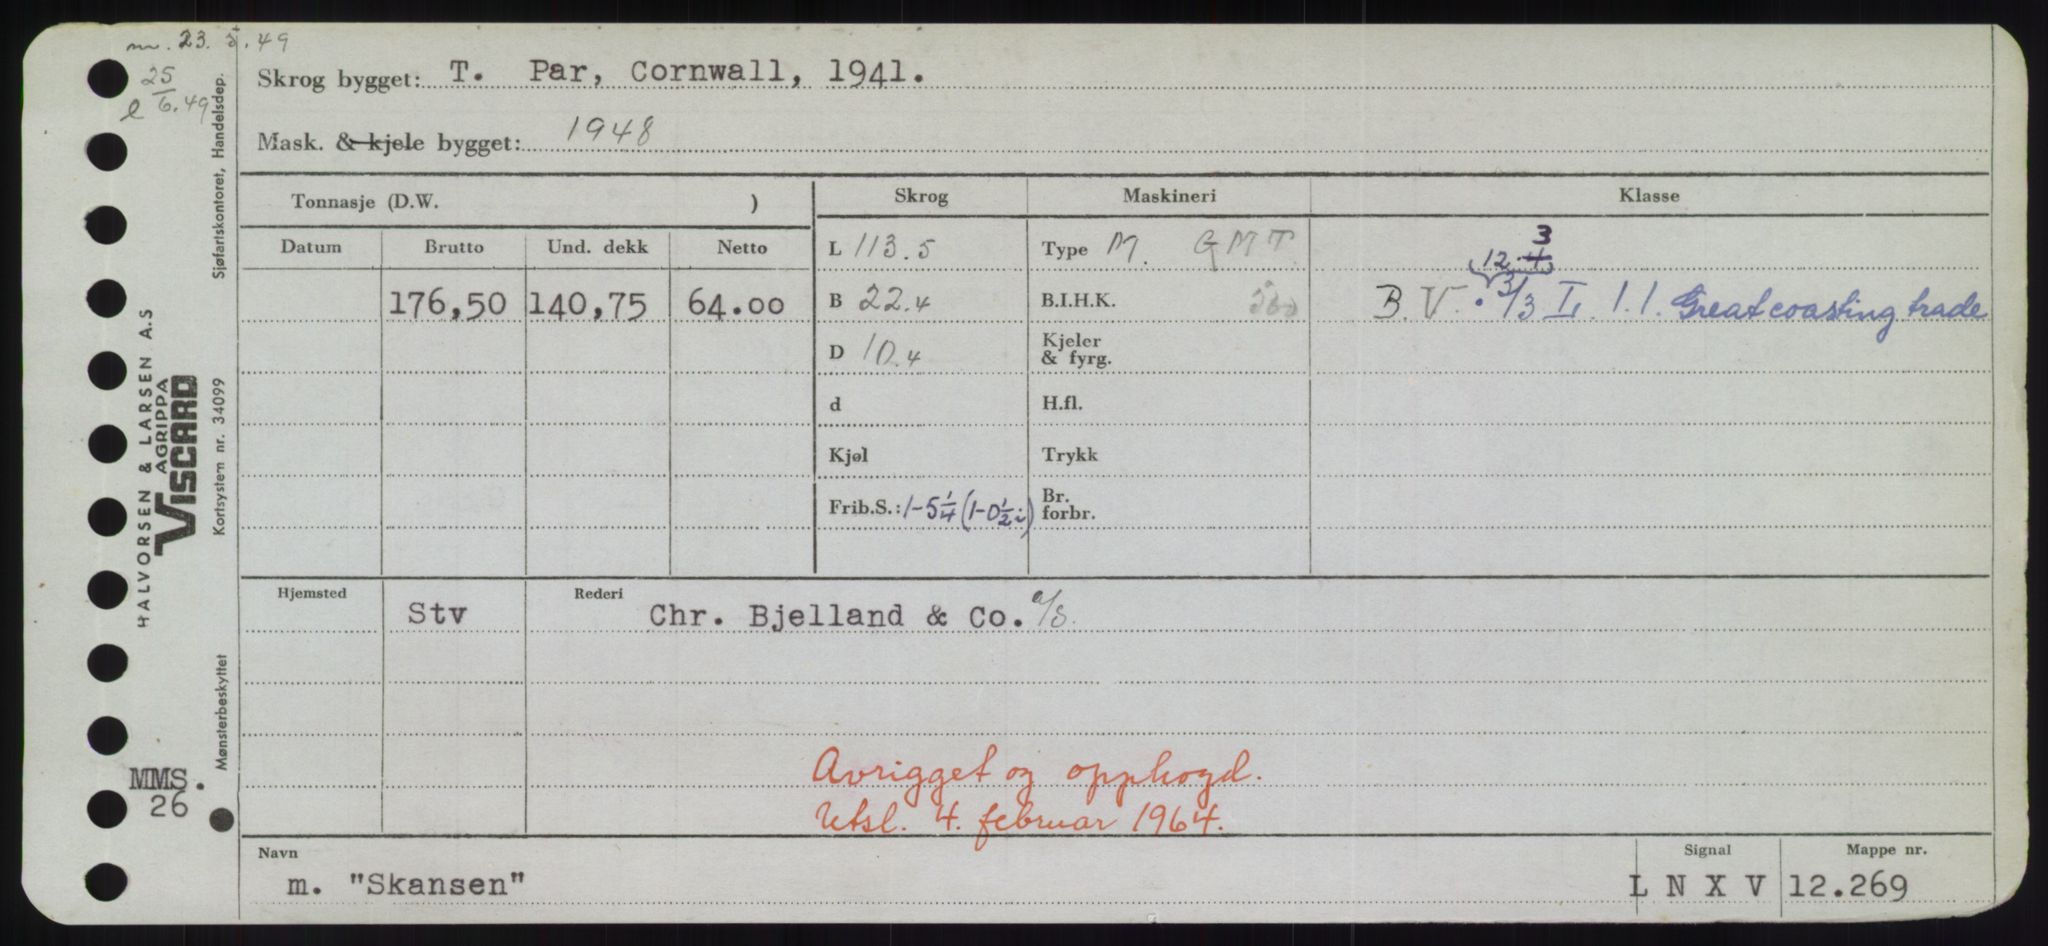 m. 23. 5. 49
25
l 6.49
Skrog bygget: T. Par, Cornwall, 1941.
Mask. & kjele bygget: 1948
Tonnasje (D.W. )
Skrog Maskineri Klasse
Datum Brutto Und. dekk Netto
L 113.5 Type M. GMT.
3
12.4
176,50 140,75 64.00
B 22.4 B.I.H.K.
B.V. 3/3 I. 1.1. Great coasting trade
D 10.4 Kjeler
& fyrg.
d H.fl.
Kjøl Trykk
Frib.S.: 1-5 1/4 (1-0 1/2 i) Br.
forbr.
Hjemsted Rederi
Stv Chr. Bjelland & Co. a/s.
Avrigget og opphogd.
Utsl. 4. februar 1964.
Navn Signal Mappe nr.
m. "Skansen" L N X V 12.269
Sjøfartskontoret, Handelsdep.
HALVORSEN & LARSEN A.S
AGRIPPA
VISCARD
Kortsystem nr. 34099
Mønsterbeskyttet
MMS.
26